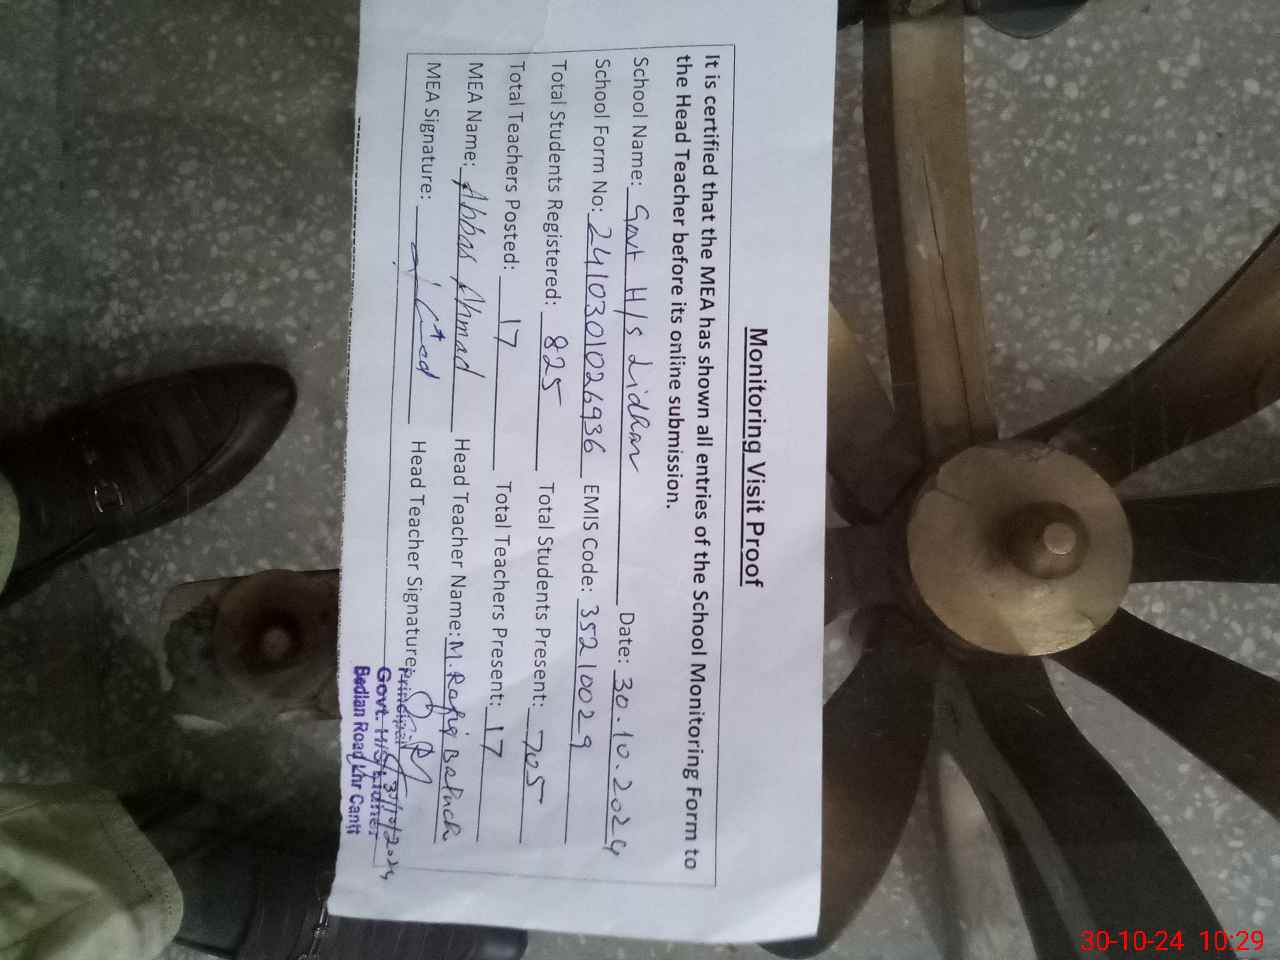 Monitoring Visit Proof
It is certified that the MEA has shown all entries of the School Monitoring Form to
the Head Teacher before its online submission.
School Name: Govt H/s Lidhar Date: 30.10.2024
School Form No: 2410301026936 EMIS Code: 35210029
Total Students Registered: 825 Total Students Present: 705
Total Teachers Posted: 17 Total Teachers Present: 17
MEA Name: Abbas Ahmad Head Teacher Name: M. Rafiq Baluch
MEA Signature: Head Teacher Signature:
30/10/2024
Principal
Govt. H/S Lidher
Bedian Road Lhr Cantt
30-10-24 10:29